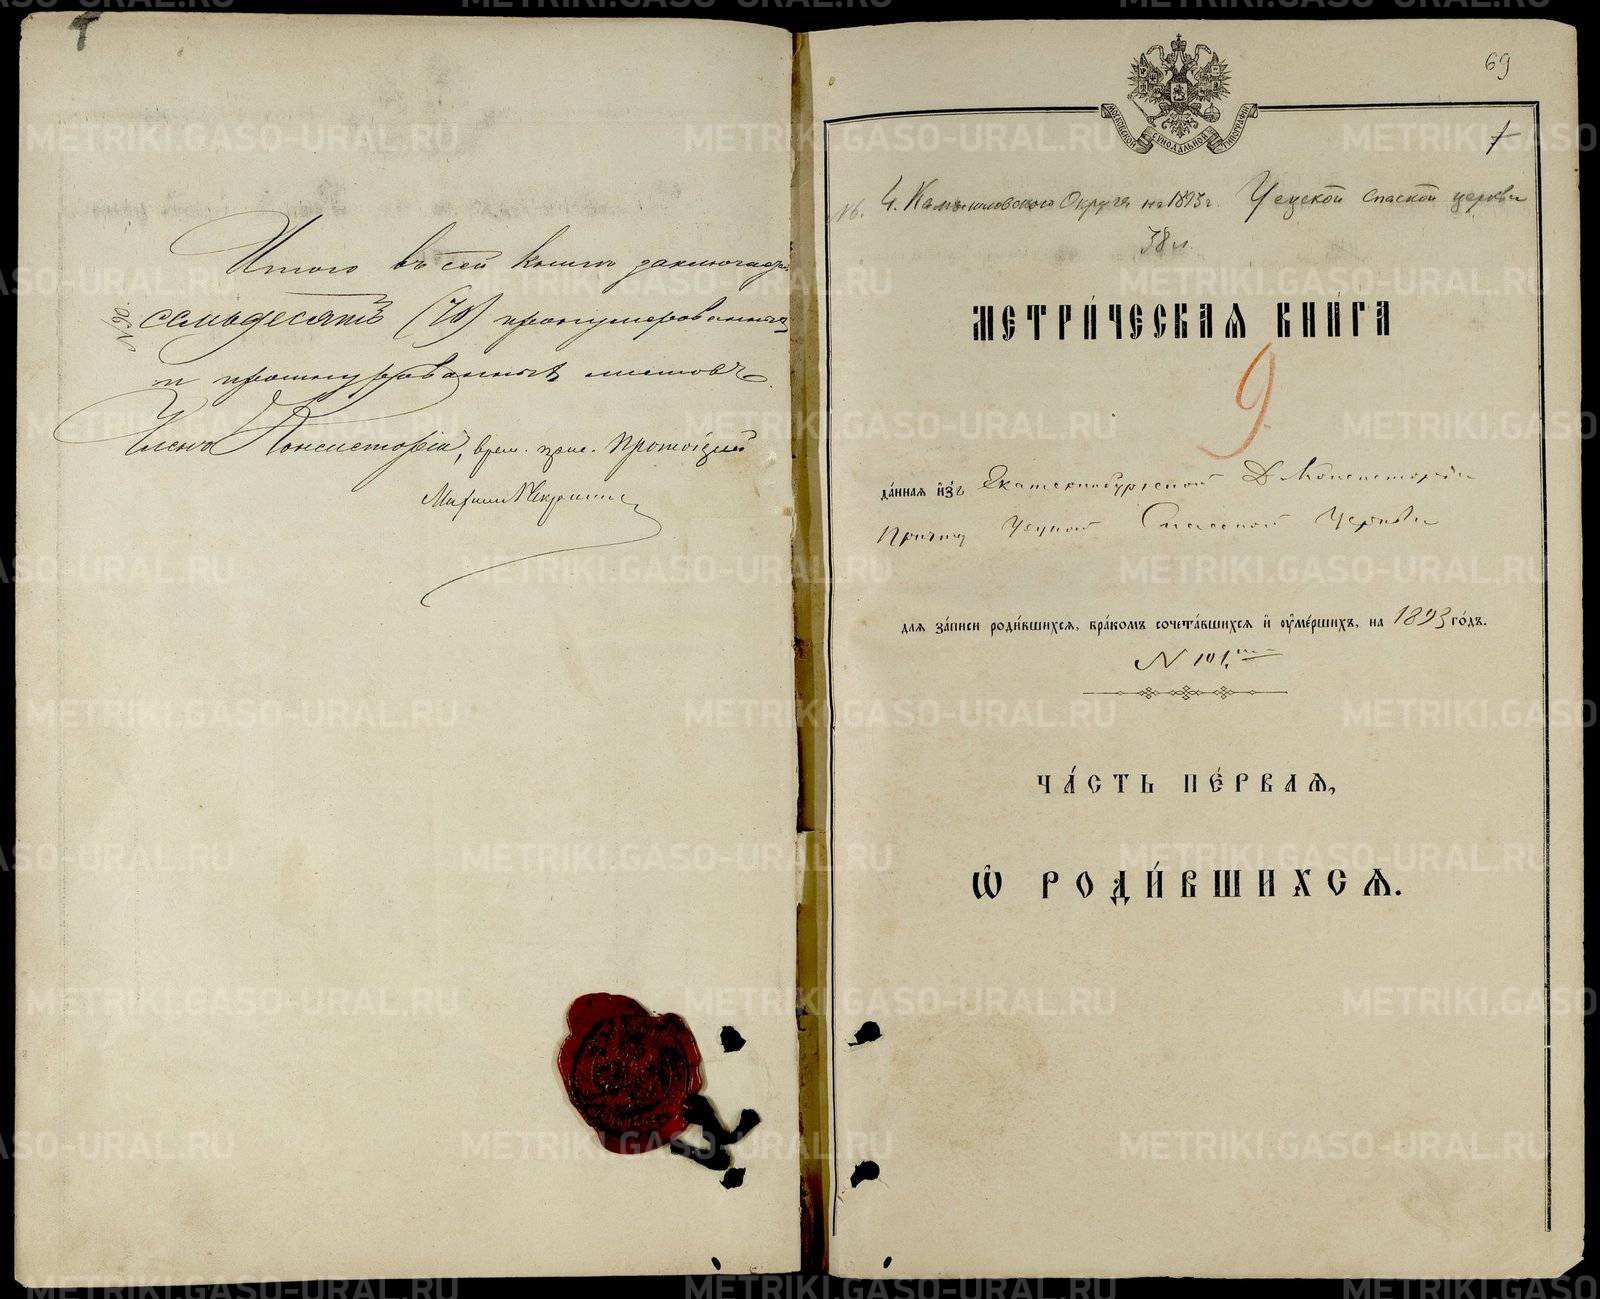 Итого въ сей книгѣ заключается
семьдесятъ (70) пронумерованныхъ
и прошнурованныхъ листовъ.
Членъ Консисторіи, врем. прис. Протоіерей
Михаилъ Некрасинъ
69
1
МОСКОВСКОЙ СѴНОДАЛЬНОЙ ТИПОГРАФІИ
4. Камышловского Округа на 1893 г. Чецкой спаской церкви
38 л.
МЕТРИ́ЧЕСКАѦ КНИ́ГА
9
да́нная и҆зъ Екатеринбургской Д. Консисторіи
Причту Спасской Церкви
для за́писи роди́вшихсѧ, бра́комъ сочета́вшихсѧ и҆ ᲂу҆ме́ршихъ, на 1893 го́дъ.
N 101
ЧА́СТЬ ПЕ́РВАѦ,
Ѽ РОДИ́ВШИХСѦ.
METRIKI.GASO-URAL.RU